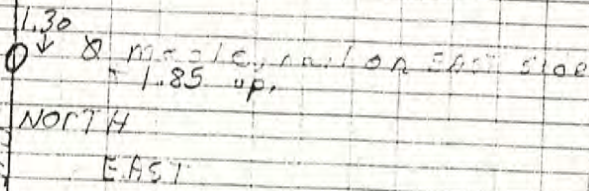 1.30
maple, nail on EAST SIDE
1.85 up.
NORTH
EAST